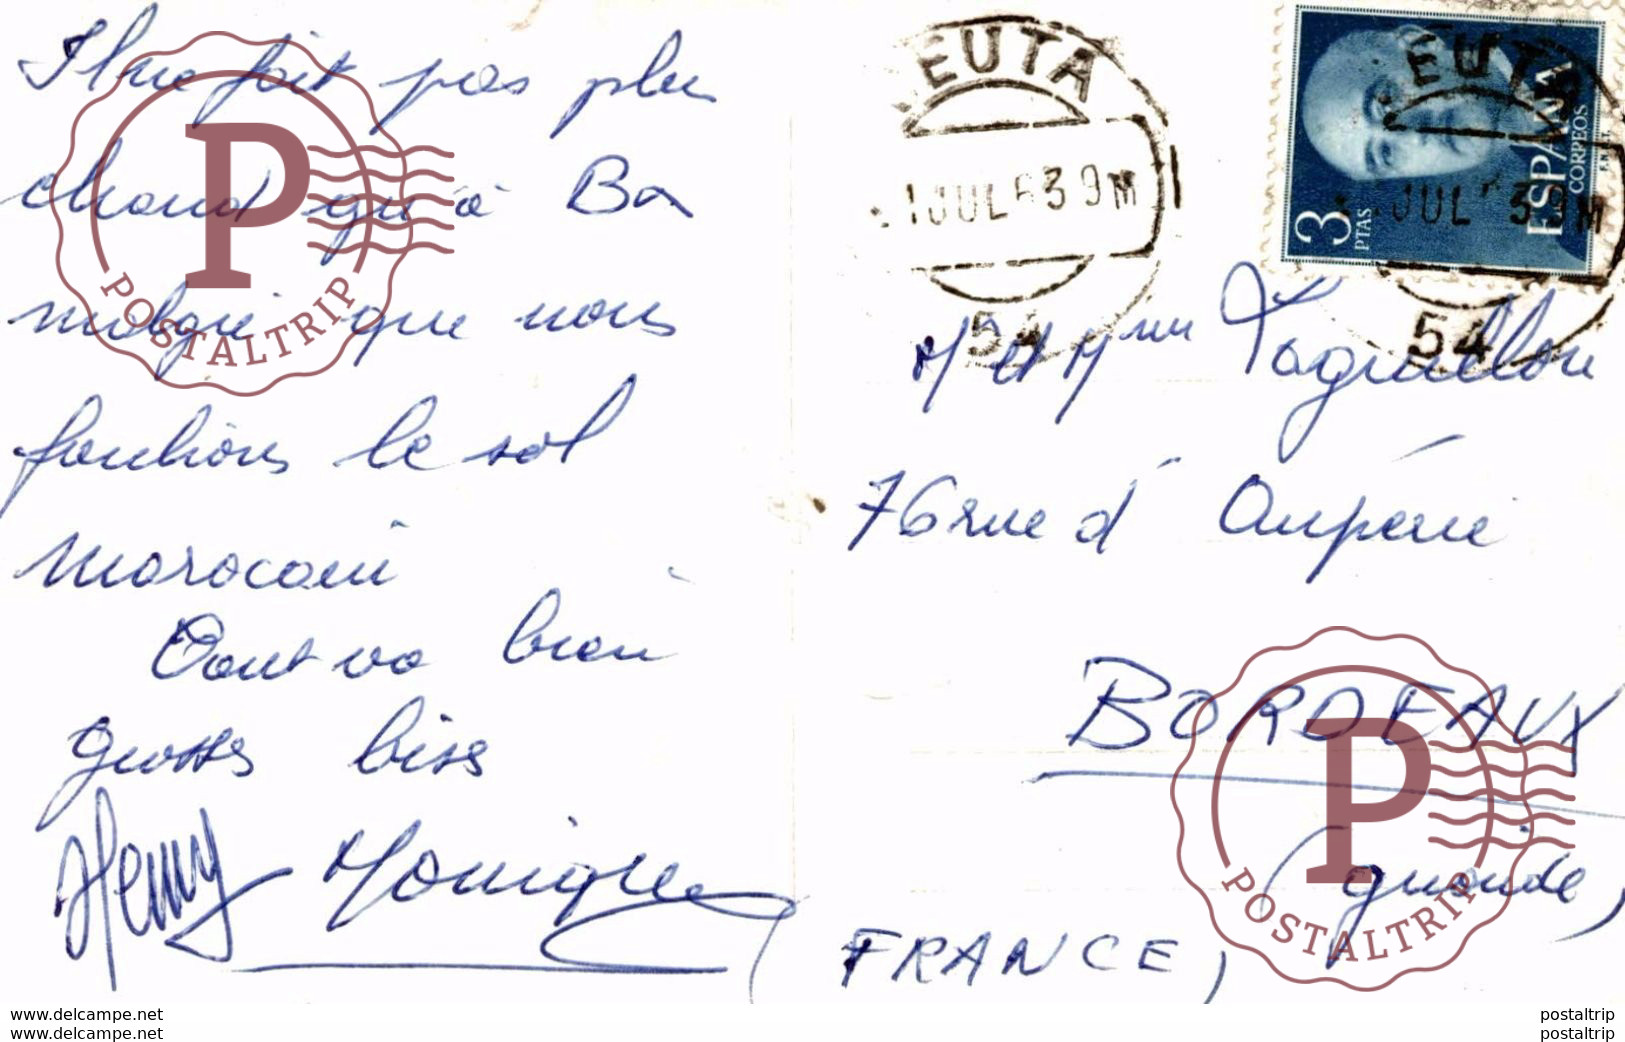 Il ne fait pas plus
chaud qu'à Ba
malgré que nous
foulions le sol
marocain
Tout va bien
grosses bises
Henry Monique
CEUTA
1 JUL 63 9M
54
CEUTA
1 JUL 63 9M
54
3 PTAS
ESPAÑA
CORREOS
F.N.M.T.
M et Mme
76 rue d'
BORDEAUX
(gironde)
FRANCE
P
POSTALTRIP
P
POSTALTRIP
www.delcampe.net postaltrip
www.delcampe.net postaltrip